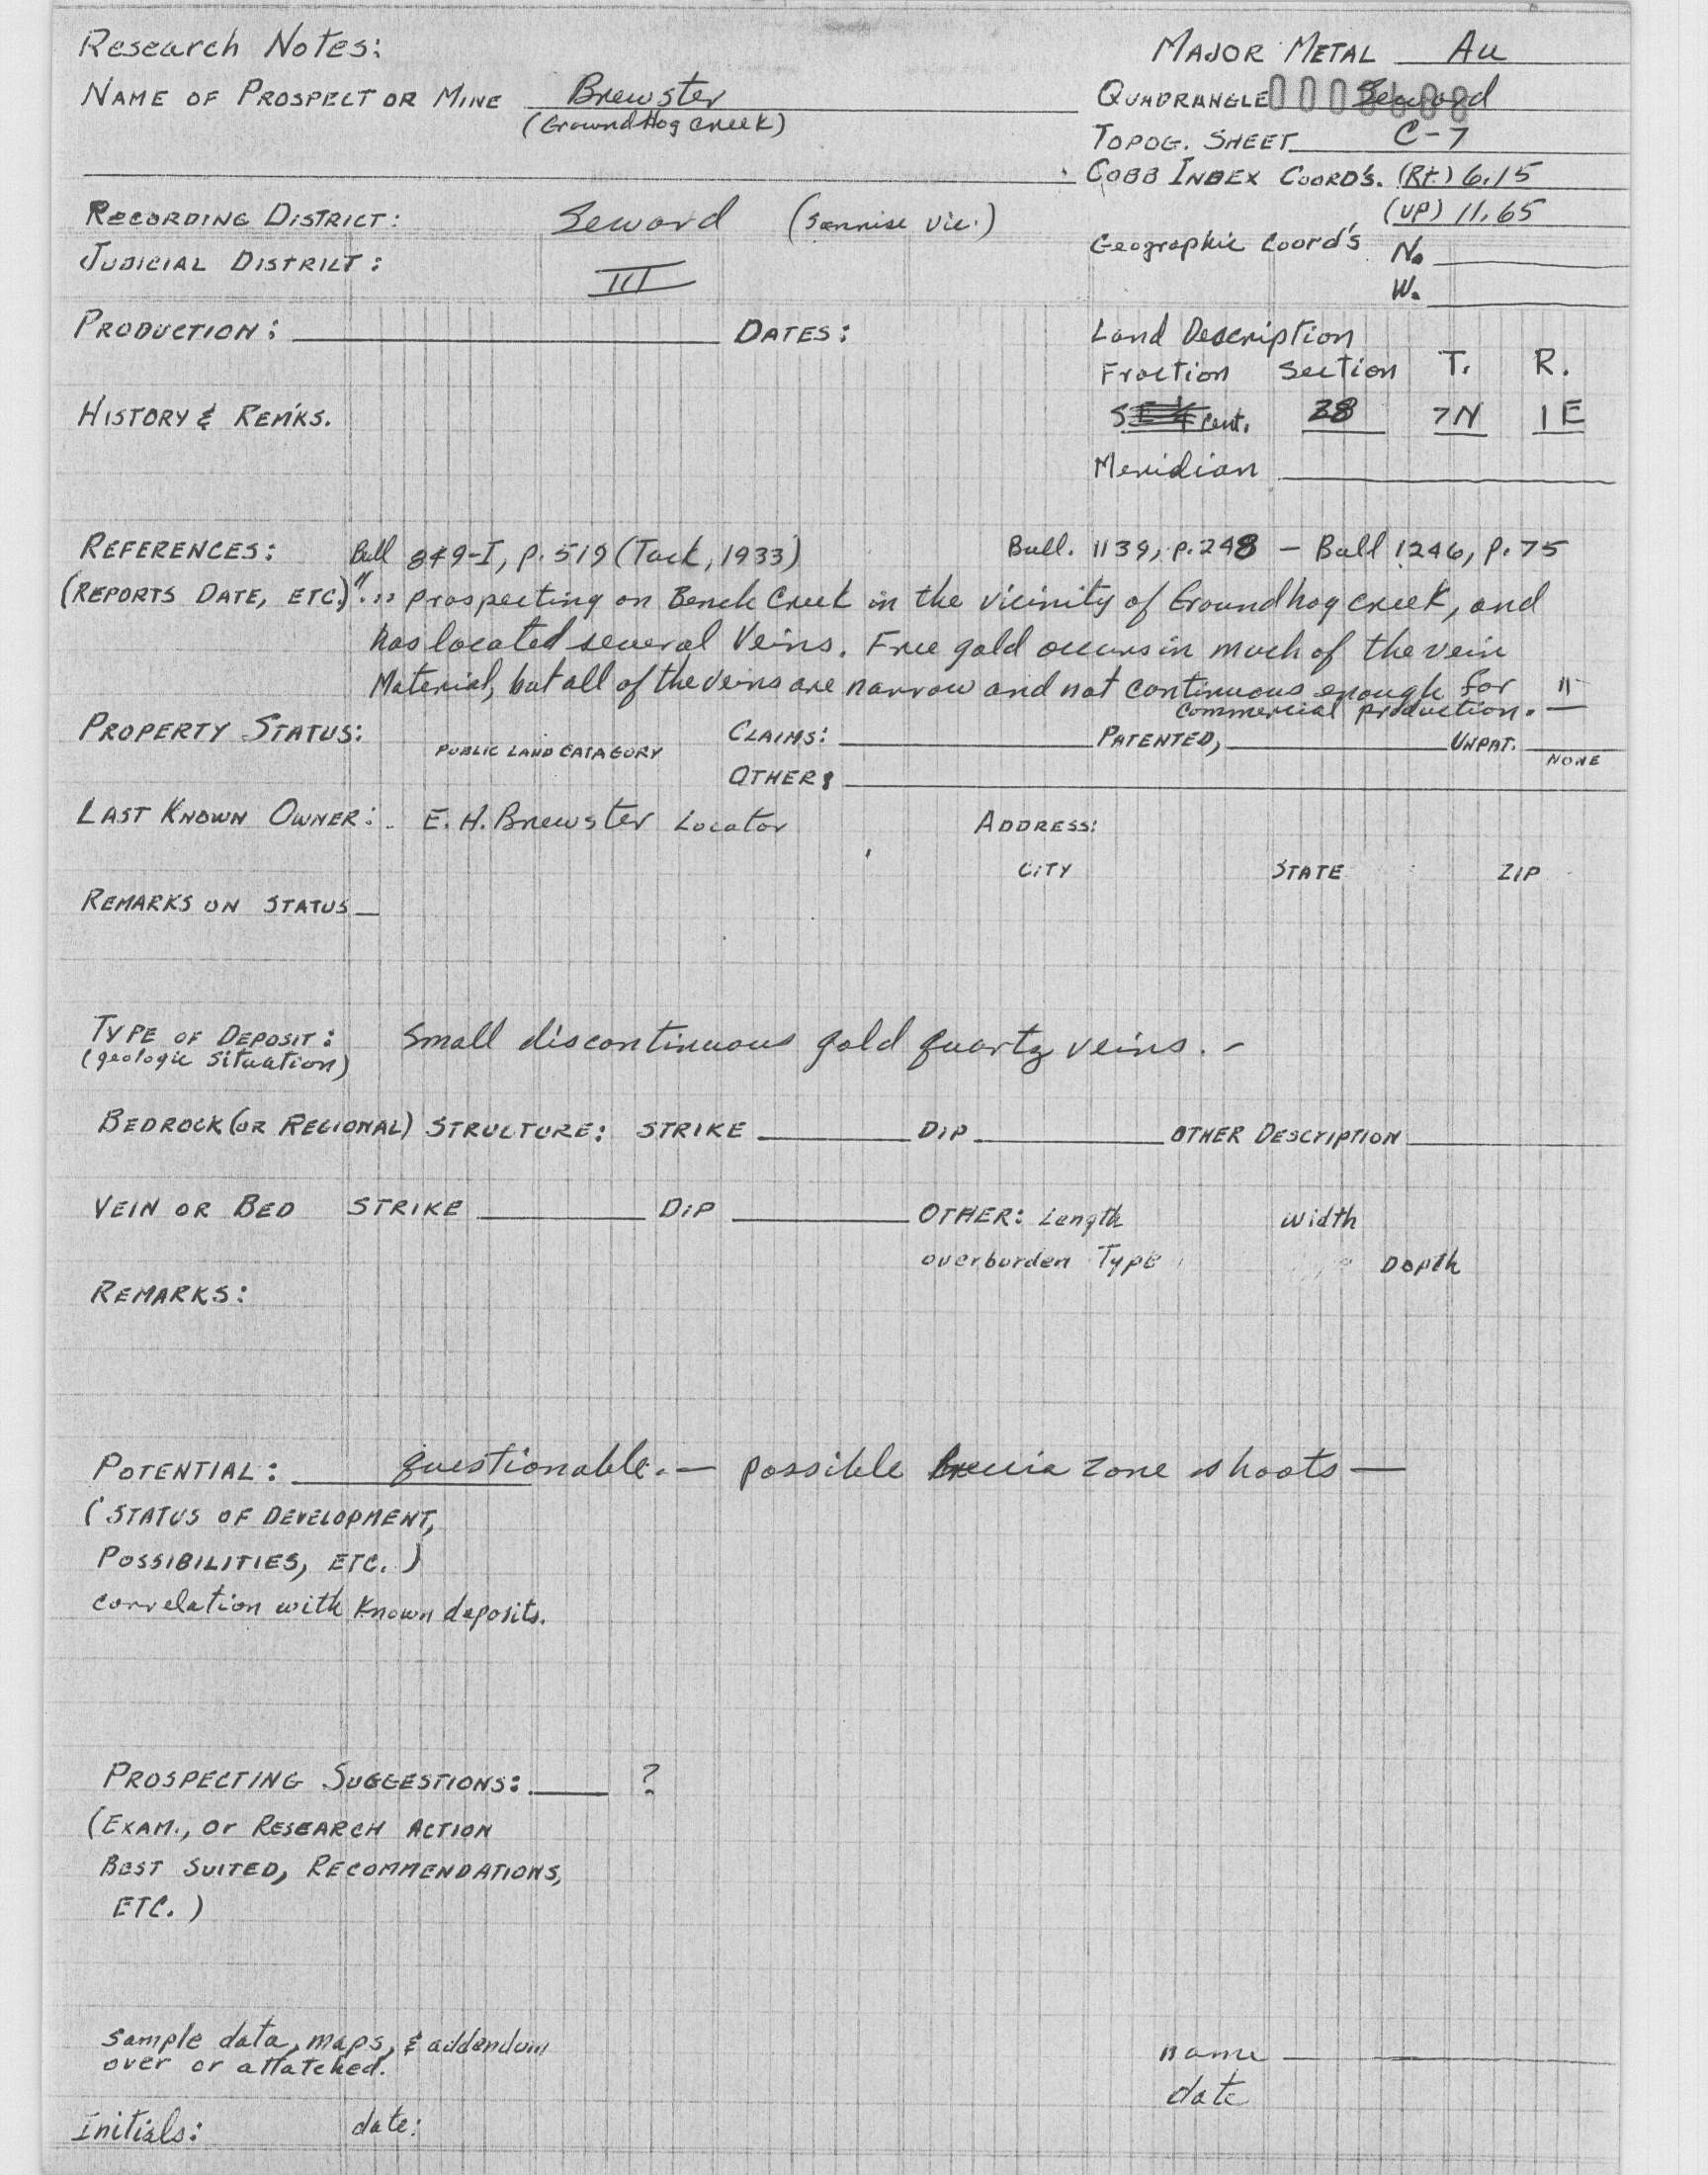 Research Notes:
MAJOR METAL Au
NAME OF PROSPECT OR MINE Brewster
(GroundHog Creek)
QUADRANGLE Seward
TOPOG. SHEET C-7
COBB INDEX COORD'S. (Rt.) 6.15
(UP) 11.65
RECORDING DISTRICT: Seward (Sunrise Vic.)
Geographic Coord's N.
W.
JUDICIAL DISTRICT: III
PRODUCTION: DATES:
Land Description
Fraction Section T. R.
S cent. 28 7N 1E
HISTORY & REM'KS.
Meridian
REFERENCES: Bull 849-I, p. 519 (Tuck, 1933) Bull. 1139, p. 248 — Bull 1246, p. 75
(REPORTS DATE, ETC.) "... prospecting on Bench Creek in the vicinity of Groundhog creek, and
has located several Veins. Free gold occurs in much of the vein
Material, but all of the veins are narrow and not continuous enough for
commercial production. "
PROPERTY STATUS: PUBLIC LAND CATAGORY CLAIMS: PATENTED, UNPAT.
NONE
OTHER:
LAST KNOWN OWNER: E. H. Brewster Locator ADDRESS:
CITY STATE ZIP
REMARKS ON STATUS
TYPE OF DEPOSIT: Small discontinuous gold quartz veins. -
(geologic situation)
BEDROCK (OR REGIONAL) STRUCTURE: STRIKE DIP OTHER DESCRIPTION
VEIN OR BED STRIKE DIP OTHER: Length width
overburden Type Depth
REMARKS:
POTENTIAL: questionable. — possible Breccia zone shoots —
(STATUS OF DEVELOPMENT,
POSSIBILITIES, ETC.)
correlation with known deposits.
PROSPECTING SUGGESTIONS: ?
(EXAM., Or RESEARCH ACTION
BEST SUITED, RECOMMENDATIONS,
ETC.)
sample data, maps, & addendum
over or attatched.
name
date
Initials: date: